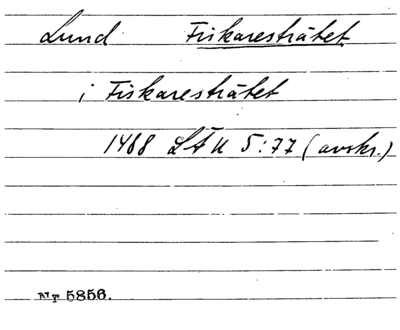 Lund Fiskaresträtet
i Fiskaresträtet
1488 LÄU 5:77 (avskr.)
Nr 5856.